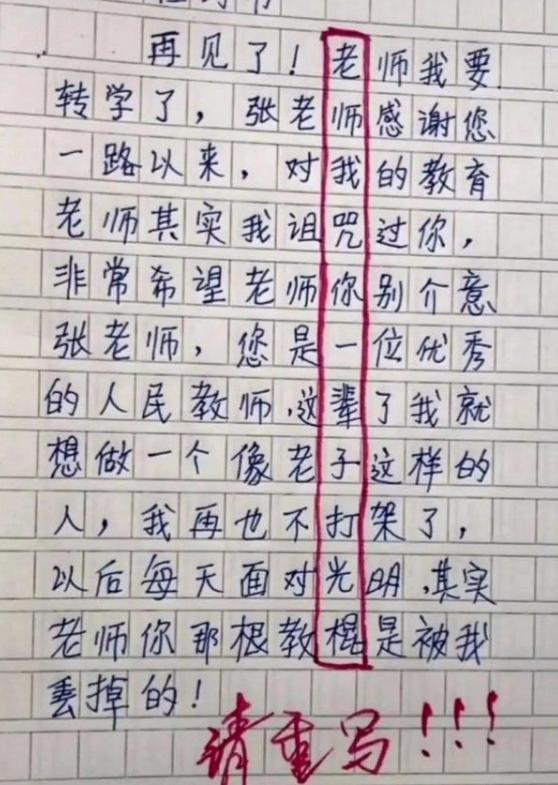 再见了！老师我要
转学了，张老师感谢您
一路以来，对我的教育
老师其实我诅咒过你，
非常希望老师你别介意
张老师，您是一位优秀
的人民教师，这辈了我就
想做一个像老子这样的
人，我再也不打架了，
以后每天面对光明，其实
老师你那根教棍是被我
丢掉的！
请重写！！！